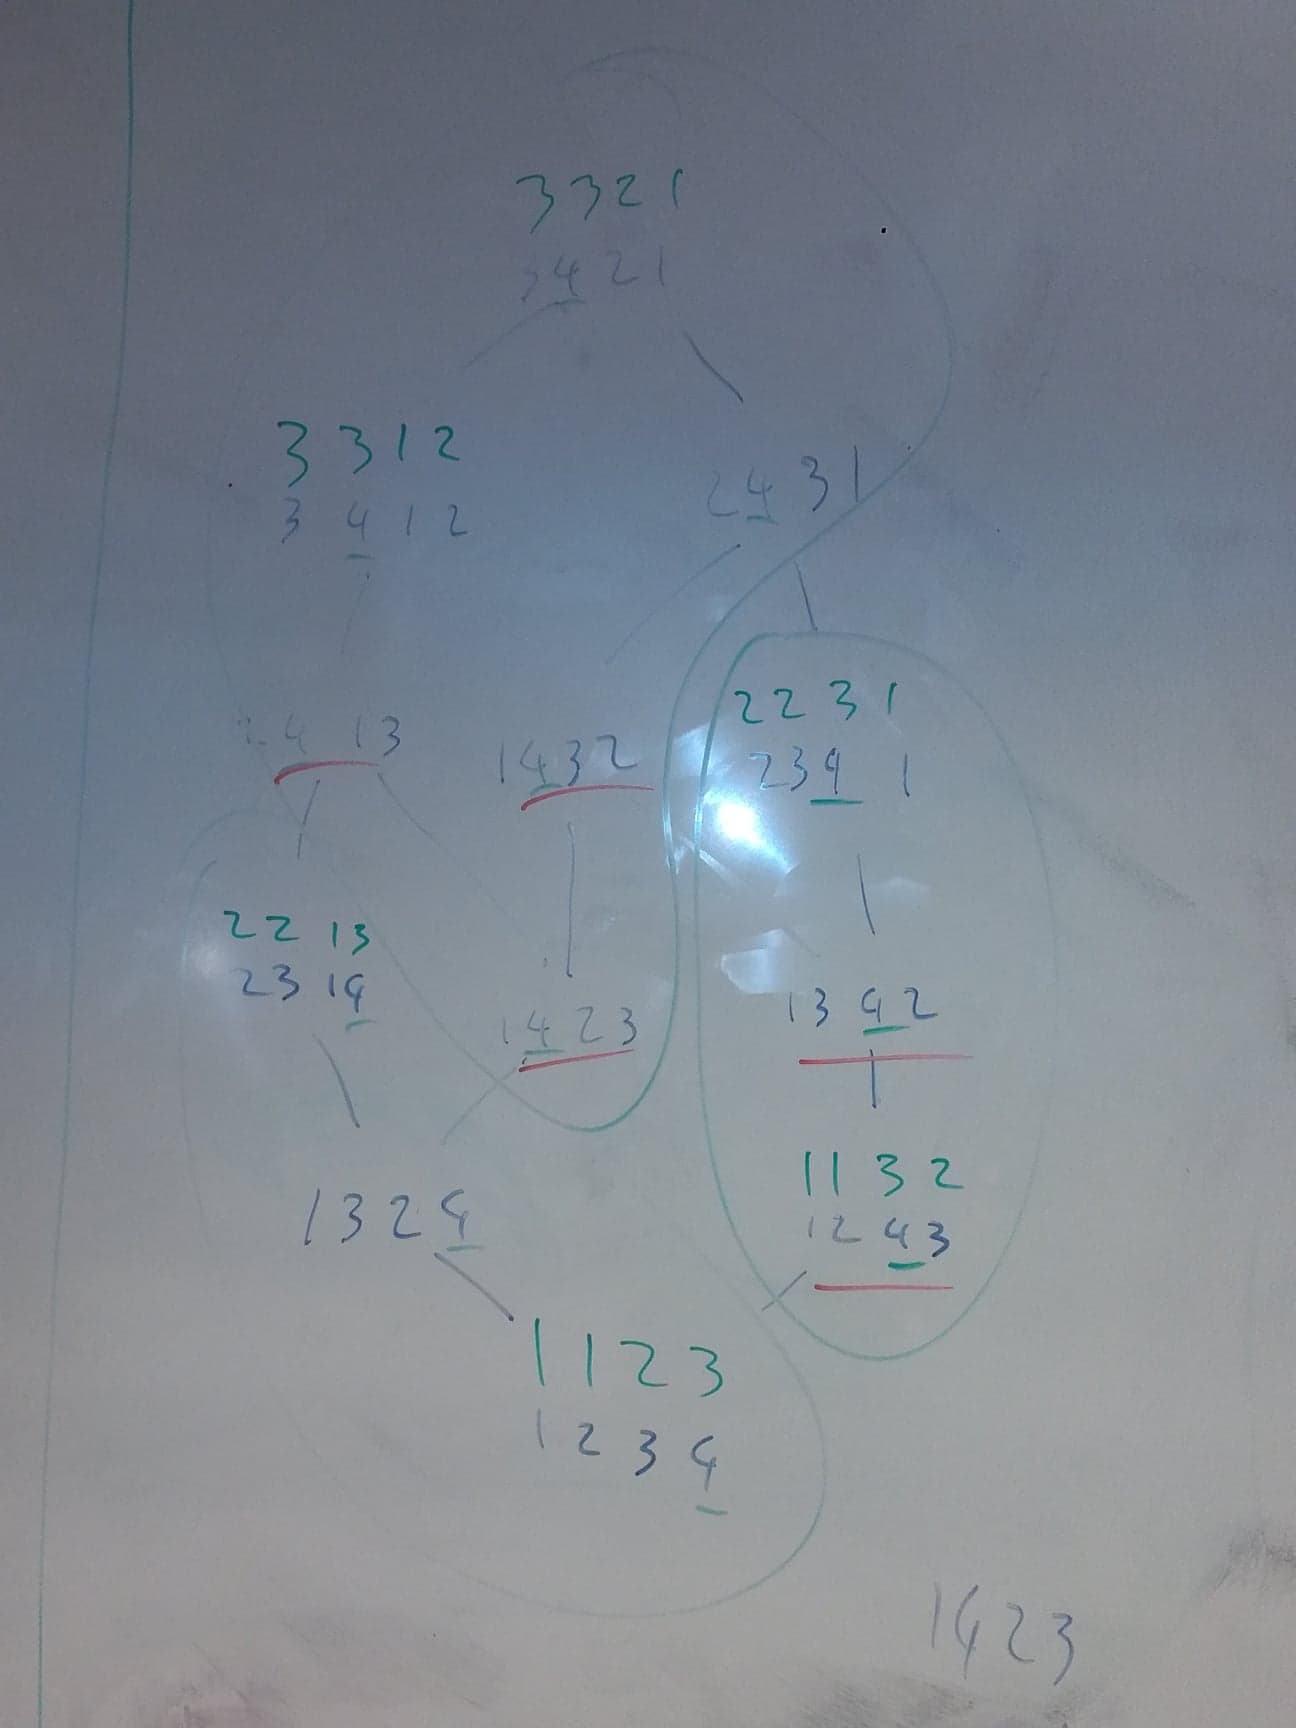 3321
3421
3312
3412
2431
2413
1432
2231
2341
2213
2314
1423
1342
1324
1132
1243
1123
1234
1423